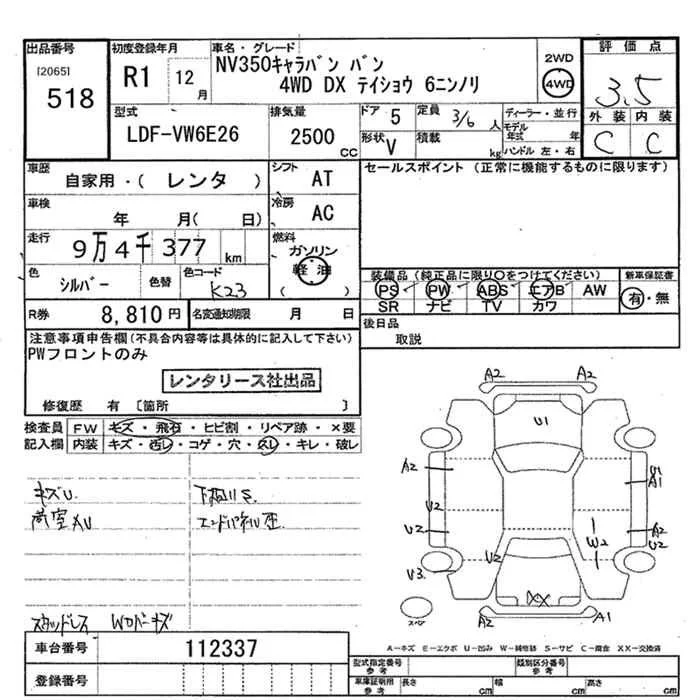 出品番号
[2065]
518
初度登録年月
R1 12月
車名・グレード
NV350キャラバン バン
4WD DX テイショウ 6ニンノリ
2WD
4WD
評価点
3.5
外装 内装
C C
型式
LDF-VW6E26
排気量
2500 CC
ドア 5
定員 3/6 人
形状 V
積載 kg
ディーラー・並行
モデル年式 年
ハンドル 左・右
車歴
自家用・( レンタ )
シフト AT
セールスポイント (正常に機能するものに限ります)
車検
年 月( 日)
冷房 AC
走行
9万4千377 km
燃料
ガソリン
軽油
( )
色 シルバー 色替
色コード K23
装備品 (純正品に限り○をつけてください)
PS PW ABS エアB AW
SR ナビ TV カワ
新車保証書
有・無
R券 8,810円
名変通知期限 月 日
後日品
取説
注意事項申告欄(不具合内容等は具体的に記入して下さい)
PWフロントのみ
レンタリース社出品
修復歴 有 〔箇所 〕
検査員記入欄
FW キズ・飛石・ヒビ割・リペア跡・×要
内装 キズ・汚レ・コゲ・穴・スレ・キレ・破レ
キズU
荷室AU
下廻りS
スタッドレス
A2 A2
U1
A2
U1
A1
U2
U2
A2
U2
W2
U2
U3
XX
A2
A1
スペア
A-キズ E-エクボ U-凹み W-補修跡 S-サビ C-腐食 XX-交換済
車台番号 112337
登録番号
型式指定番号
参考
類別区分番号
参考
車庫証明用
参考
長さ cm 幅 cm 高さ cm